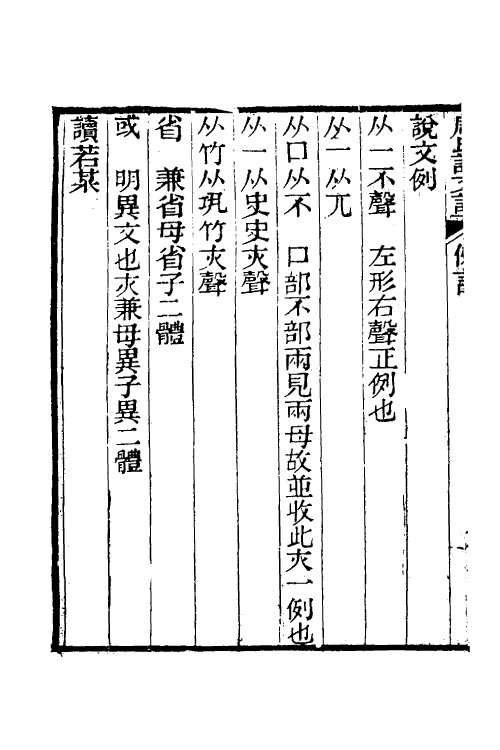 說文例
从一不聲　左形右聲正例也
从一从兀
从口从不　口部不部兩見兩母故並收此亦一例也
从一从史史亦聲
从竹从巩竹亦聲
省　兼省母省子二體
或　明異文也亦兼母異子異二體
讀若某